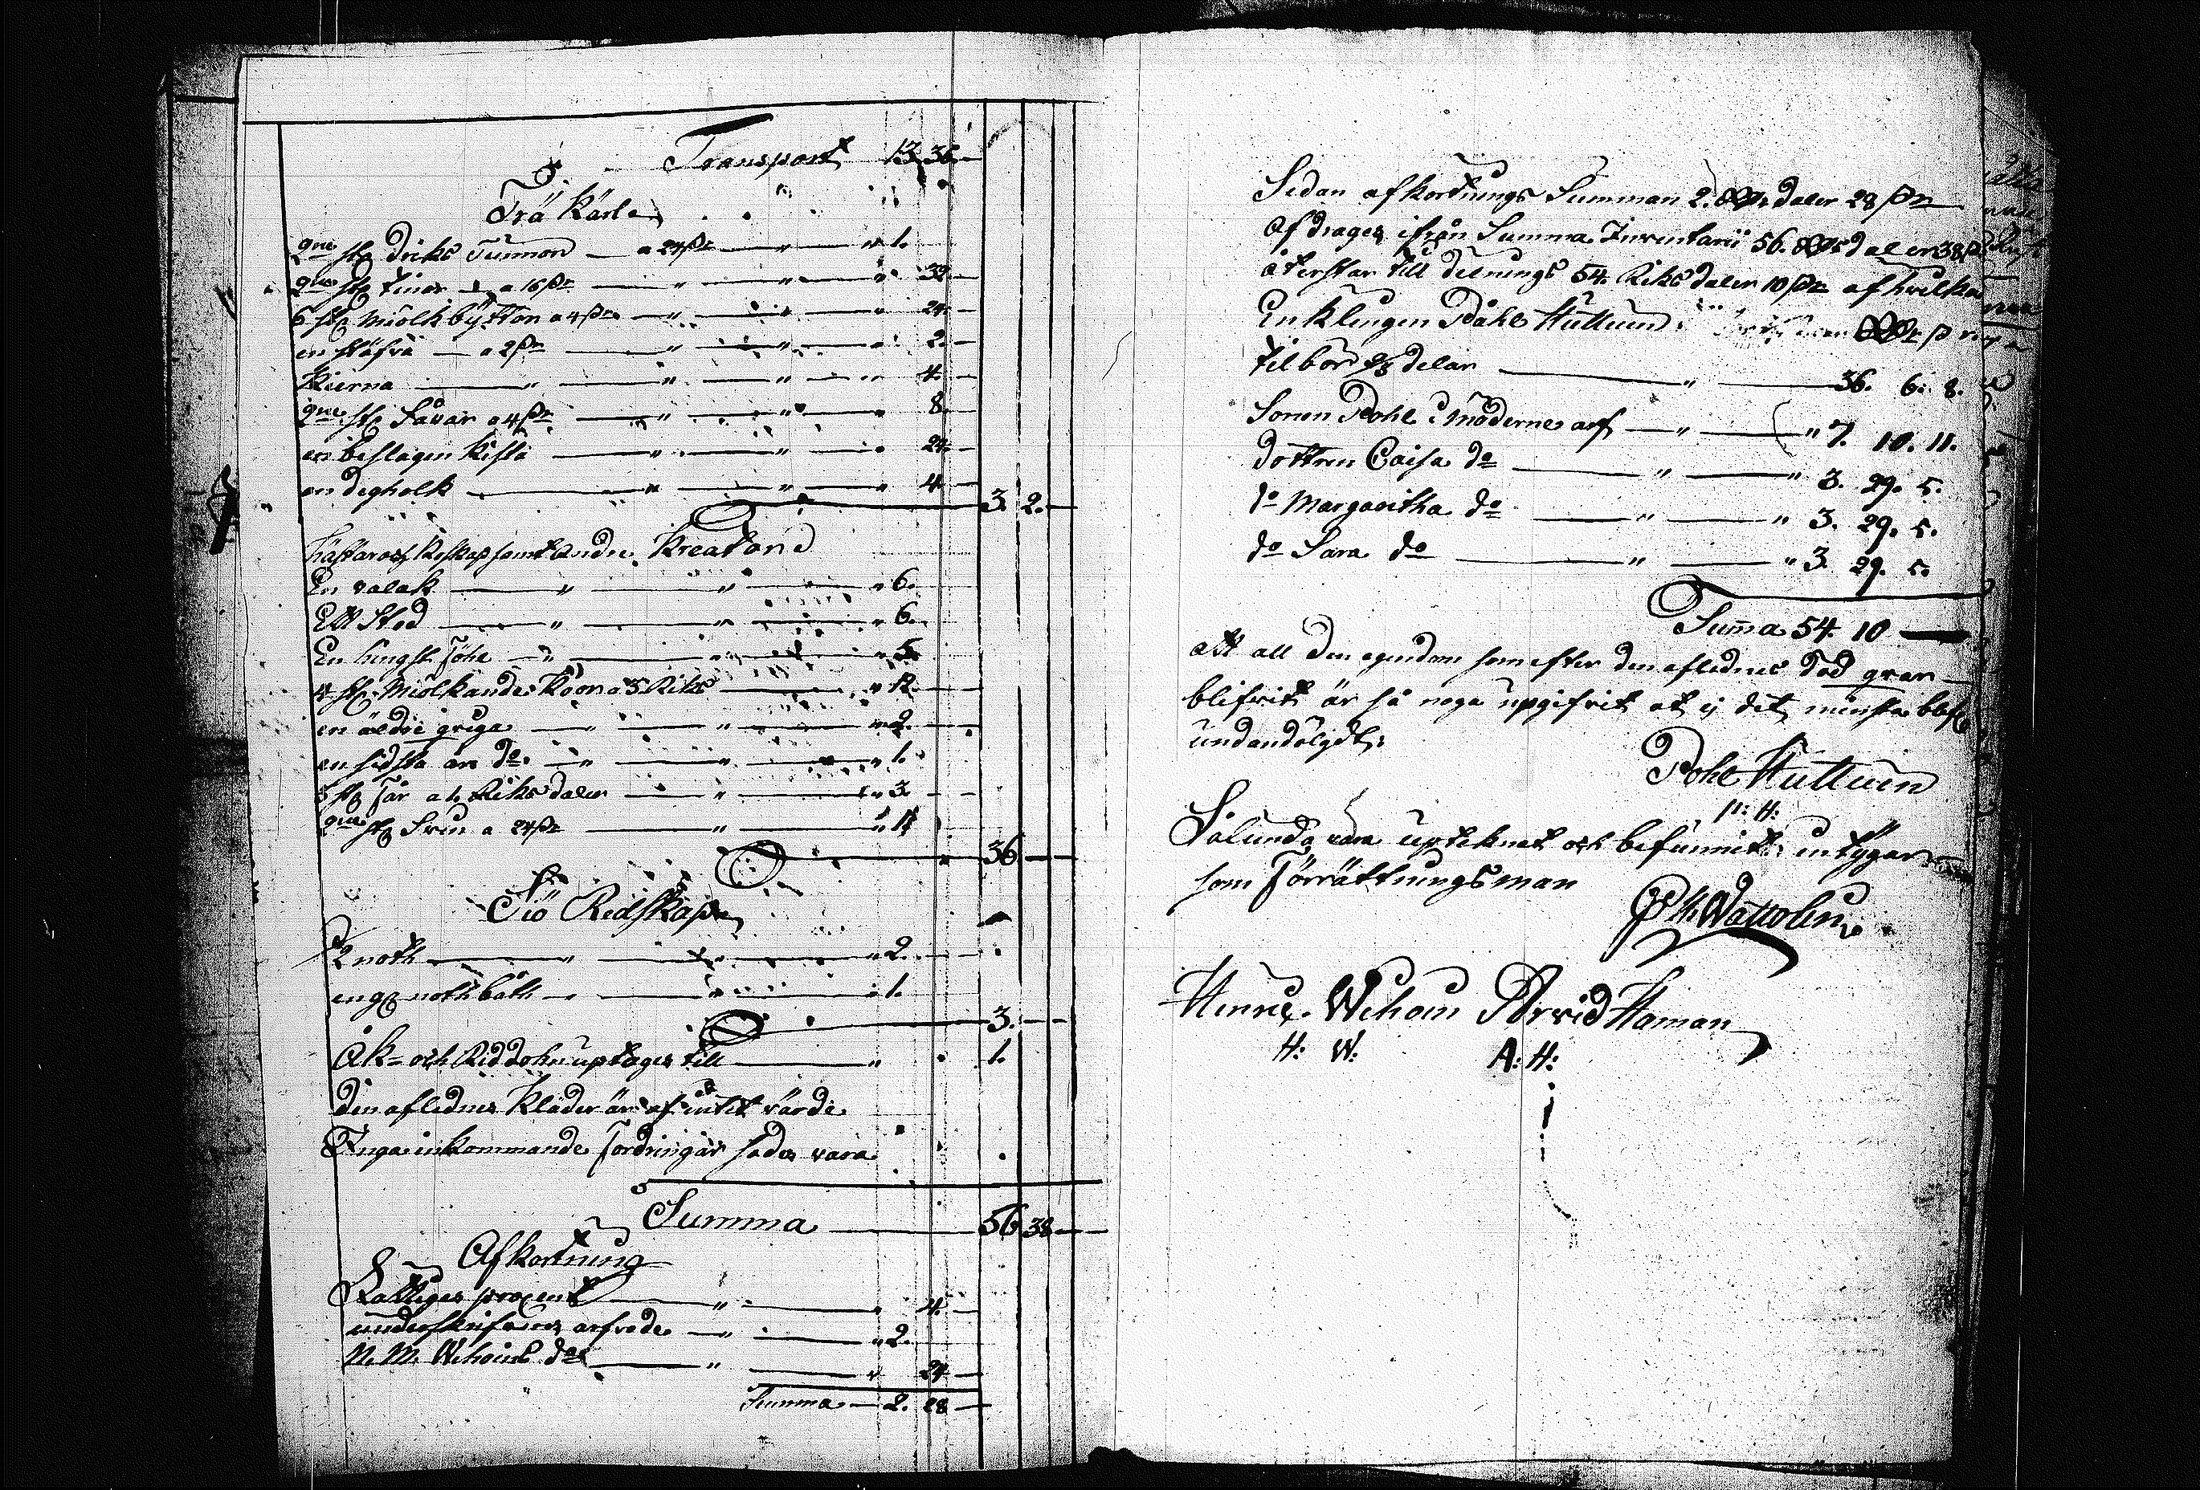 Transport 13 36 —
Trä Kärl
2ne st. Dricks Tunnor — a 24 sk — " — " 1.
2ne st. tiner — a 16 sk — " — " 32 —
6 st. miölk byttor a 4 sk — " — " 24 —
en stäfva — a 2 sk — " — " 2 —
Kierna — " — " 4 —
2ne st. Såar a 4 sk — " — " 8 —
en beslagen Kista — " — " 24 —
en degholk — " — " 4 —
3 2. —
hästar och Boskap samt andre Kreatur
En valak — " — " 6.
Ett Stod — " — " 6.
En hingst Föhl — " — " 5
4 st. Miölkande Koor a 3 Riks — " 12 —
en äldre quiga — " — " 2 —
en sidsta års do — " — " 1.
3 st. Får a 1. Riksdaler — " — " 3 —
2ne st. Svin a 24 sk — " — " 1
36 —
Siö Redskap
1/2 noth — " — " 2. —
en gl noth båth — " — " 1.
3. —
Åk- och Riddohn uptages till — " 1.
den aflednes Kläder är af intet värde
Inga inkommande Fordringar sades vara
Summa — 56 38 —
Afkortning
Fattiges procent — " — " 4. —
underskrifarens arfvode — " — " 2.
N. M. Wihoins do — " — " 24 —
Summa — 2. 28 —
Sedan afkortnings Summan 2. Riksdaler 28 sk
afdrages ifrån Summa Inventarii 56. Riksdaler 38 sk
återstår till delnings 54. Riksdaler 10 sk af hvilka
Enklingen Påhl Huttuin
tilbör 2/3 delar — " — 36. 6. 8.
Sonen Pohl i möderne arf — " — " 7. 10. 11.
dottren Caisa do — " — " 3. 29. 5.
do Margaritha do — " — " 3. 29. 5.
do Sara do — " — " 3. 29. 5.
Summa 54. 10 —
att all den egendom som efter den aflednes död qvar
blifvit är så noga upgifvit at ej det minsta blif
undandölgdt.
Pohl Huttuin
P: H:
Sålunda vara uptecknat och befunnit, intygar
som Förrättningsman
Henric Wihoin Arvid Haman
H: W: A: H: